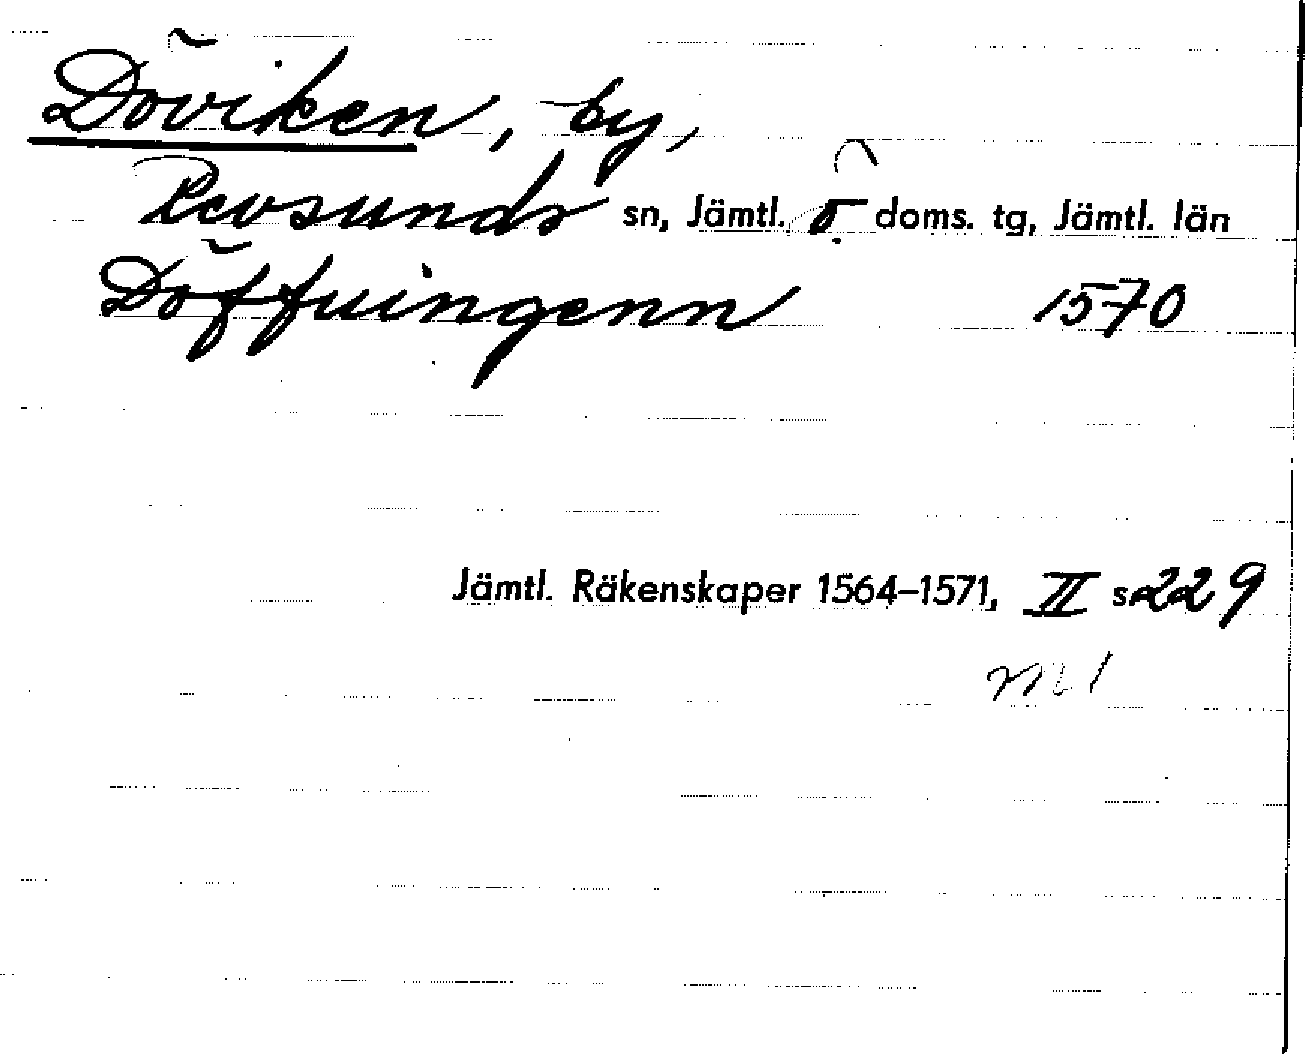 Döviken, by,
Revsunds sn, Jämtl. ö. doms. tg, Jämtl. län
Döffuingenn 1570
Jämtl. Räkenskaper 1564–1571, II s. 229